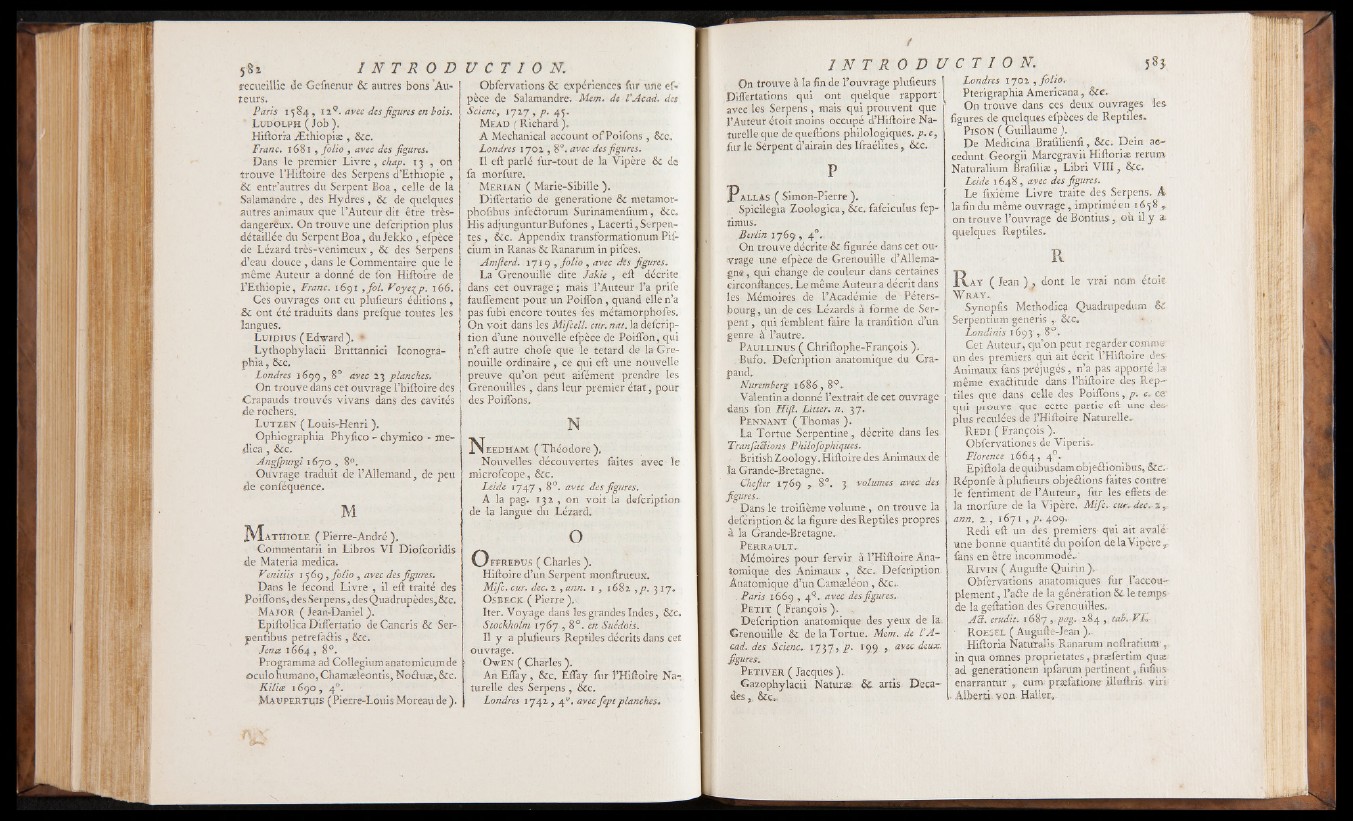 582 INTRODUCTION.
recueillie de Gesnenur & autres bons Au-
teurs.
Paris 1584, 12°. avec des figures en bois.
LUDOLPH ( Job ).
Historia Æthiopiæ , &c.
Franc. 1681 , folio , avec des figures.
Dans le premier Livre , chap. 13 , on
trouve l'Histoire des Serpens d'Ethiopie ,
& entr'autres du Serpent Boa , celle de la
Salamandre , des Hydres , & de quelques
autres animaux que l'Auteur dit être très-
dangereux. On trouve une description plus
détaillée du Serpent Boa , du Jekko , espèce
de Lézard très-venimeux , & des Serpens
d'eau douce , dans le Commentaire que le
même Auteur a donné de son Histoire de
l'Ethiopie, Franc. 1691 , fol. Voyez p. 166.
Ces ouvrages ont eu plusieurs éditions ,
& ont été traduits dans presque toutes les
langues.
LUIDIUS ( Edward ).
Lythophylacii Brittannici Iconogra-
phia, &c.
Londres 1699, 8° avec 23 planches.
On trouve dans cet ouvrage l'histoire des
Crapauds trouvés vivans dans des cavités
de rochers.
LUTZEN ( Louis-Henri ).
Ophiographia Physico - chymico - me-
dica , &c.
Angspurgi 1670 , 8°.
Ouvrage traduit de l'Allemand, de peu
de conséquence.
M
MATTHIOLE ( Pierre-André ).
Commentarii in Libros VI Dioscoridis
de Materia medica.
Venitiis 1569, folio , avec des figures.
Dans le second Livre , il est traité des
Poissons, des Serpens, des Quadrupèdes, &c.
MAJOR ( Jean-Daniel ).
Epistolica Dissertatio de Cancris & Ser-
pentibus petrefactis , &c.
Jenæ 1664 , 8°.
Programma ad Collegium anatomicum de
oculo humano, Chamæleontis, Noctuæ, &c.
Kiliæ 1690, 4°.
MAUPERTUIS ( Pierre-Louis Moreau de ).
Observations & expériences sur une es-
pèce de Salamandre. Mem. de l'Acad. des
Scienc, 1727 , p. 45.
MEAD ( Richard ).
A Mechanical account of Poisons , &c.
Londres 1702 , 8°. avec des figures.
Il est parlé sur-tout de la Vipère & de
sa morsure.
MERIAN ( Marie-Sibille ).
Dissertatio de generatione & metamor-
phosibus insectorum Surinamensium , &c.
His adjurguntur Bufones , Lacerti, Serpen-
tes , &c. Appendix transformationum Pis-
cium in Ranas & Ranarum in pisces.
Amsterd. 1719 , folio , avec des figures.
La Grenouille dite Jakie , est décrite
dans cet ouvrage ; mais l'Auteur l'a prise
faussement pour un Poisson , quand elle n'a
pas subi encore toutes ses métamorphoses.
On voit dans les Miscell. cur. nat. la descrip-
tion d'une nouvelle espèce de Poisson, qui
n'est autre chose que le tetard de la Gre-
nouille ordinaire , ce qui est une nouvelle
preuve qu'on peut aisément prendre les
Grenouilles , dans leur premier état , pour
des Poissons.
N
NEEDHAM ( Théodore ).
Nouvelles découvertes faites avec le
microscope, &c.
Leide 1747 , 8°. avec des figures.
A la pag. 132 , on voit la description
de la langue du Lézard.
O
OFFREDUS ( Charles ).
Histoire d'un Serpent monstrueux.
Misc. cur. dec. 2 , ann. 1 , 1682 , p. 317.
OSBECK ( Pierre ).
Iter. Voyage dans les grandes Indes , &c.
Stockholm 1767 , 8°. en Suédois.
Il y a plusieurs Reptiles décrits dans cet
ouvrage.
OWEN ( Charles ).
An Essay , &c. Essay sur l'Histoire Na-
turelle des Serpens , &c.
Londres 1742 , 4°. avec sept planches.
INTRODUCTION. 583
On trouve à la fin de l'ouvrage plusieurs
Dissertations qui ont quelque rapport
avec les Serpens , mais qui prouvent que
l'Auteur étoit moins occupé d'Histoire Na-
turelle que de questions philologiques. p. e,
sur le Serpent d'airain des Israélites , &c.
P
PALLAS ( Simon-Pierre ).
Spicilegia Zoologica, &c. fasciculus sep-
timus.
Berlin 1769 , 4°.
On trouve décrite & figurée dans cet ou-
vrage une espèce de Grenouille d'Allema-
gne , qui change de couleur dans certaines
circonstances. Le même Auteur a décrit dans
les Mémoires de l'Académie de Péters-
bourg, un de ces Lézards à forme de Ser-
pent , qui semblent faire la tranſition d'un
genre à l'autre.
PAULLINUS ( Christophe-François ).
Bufo. Description anatomique du Cra-
paud.
Nuremberg 1686 , 8°.
Valentin a donné l'extrait de cet ouvrage
dans son Hist. Litter. n. 37.
PENNANT ( Thomas ).
La Tortue Serpentine , décrite dans les
Transactions Philosophiques.
British Zoology. Histoire des Animaux de
la Grande-Bretagne.
Chester 1769 , 8°. 3 volumes avec des
figures.
Dans le troisième volume , on trouve la
description & la figure des Reptiles propres
à la Grande-Bretagne.
PERRAULT.
Mémoires pour servir à l'Histoire Ana-
tomique des Animaux , &c. Description
Anatomique d'un Camæléon , &c.
Paris 1669 , 4°. avec des figures.
PETIT ( François ).
Description anatomique des yeux de la
Grenouille & de la Tortue. Mem. de l'A-
cad. des Scienc. 1737, p. 199 , avec deux
figures.
PETIVER ( Jacques ).
Gazophylacii Naturæ & artis Deca-
des , &c.
Londres 1702 , folio.
Pterigraphia Americana , &c.
On trouve dans ces deux ouvrages les
figures de quelques espèces de Reptiles.
PISON ( Guillaume ).
De Medicina Brasiliensi, &c. Dein ac-
cedunt Georgii Marcgravii Historiæ rerum
Naturalium Brasiliæ , Libri VIII, &c.
Leide 1648 , avec des figures.
Le sixième Livre traite des Serpens. A
la fin du même ouvrage , imprimé en 1658 ,
on trouve l'ouvrage de Bontius , où il y a
quelques Reptiles.
R
RAY ( Jean ) , dont le vrai nom étoit
WRAY.
Synopsis Methodica Quadrupedum &
Serpentium generis , &c.
Londinis 1693 , 8°.
Cet Auteur, qu'on peut regarder comme
un des premiers qui ait écrit l'Histoire des
Animaux sans préjugés , n'a pas apporté la
même exactitude dans l'histoire des Rep-
tiles que dans celle des Poissons, p. e. ce
qui prouve que cette partie est une des
plus reculées de l'Histoire Naturelle.
REDI ( François ).
Observationes de Viperis.
Florence 1664 , 4°.
Epistola de quibusdam objectionibus, &c.
Réponse à plusieurs objections faites contre
le sentiment de l'Auteur, sur les effets de
la morsure de la Vipère. Misc. cur. dec. 2,
ann. 2 , 1671 , p. 409.
Redi est un des premiers qui ait avalé
une bonne quantité du poison de la Vipère ,
sans en être incommodé.
RIVIN ( Auguste Quirin ).
Observations anatomiques sur l'accou-
plement, l'acte de la génération & le temps
de la gestation des Grenouilles.
Act. erudit. 1687 , pag. 284 , tab. VI.
ROESEL ( Auguste-Jean ).
Historia Naturalis Ranarum nostratium ,
in qua omnes proprietates , præsertim quæ
ad generationem ipsarum pertinent , fusius
enarrantur , cum præfatione illustris viri
Alberti von Haller.